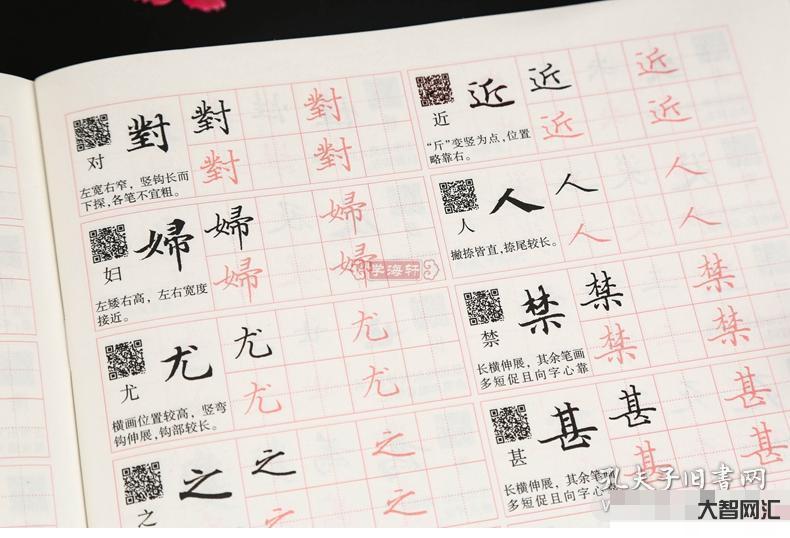 對 對 對
對 對
对
左宽右窄，竖钩长而
下探，各笔不宜粗。
婦 婦 婦
婦 婦
妇
左矮右高，左右宽度
接近。
尤 尤 尤
尤 尤
尤
横画位置较高，竖弯
钩伸展，钩部较长。
之 之 之
之 之
之
近 近 近
近 近
近
“斤”变竖为点，位置
略靠右。
人 人 人
人 人
人
撇捺皆直，捺尾较长。
禁 禁 禁
禁 禁
禁
长横伸展，其余笔画
多短促且向字心靠
甚 甚 甚
甚 甚
甚
长横伸展，其余笔画
多短促且向字心靠
学海轩
孔夫子旧书网
大智网汇